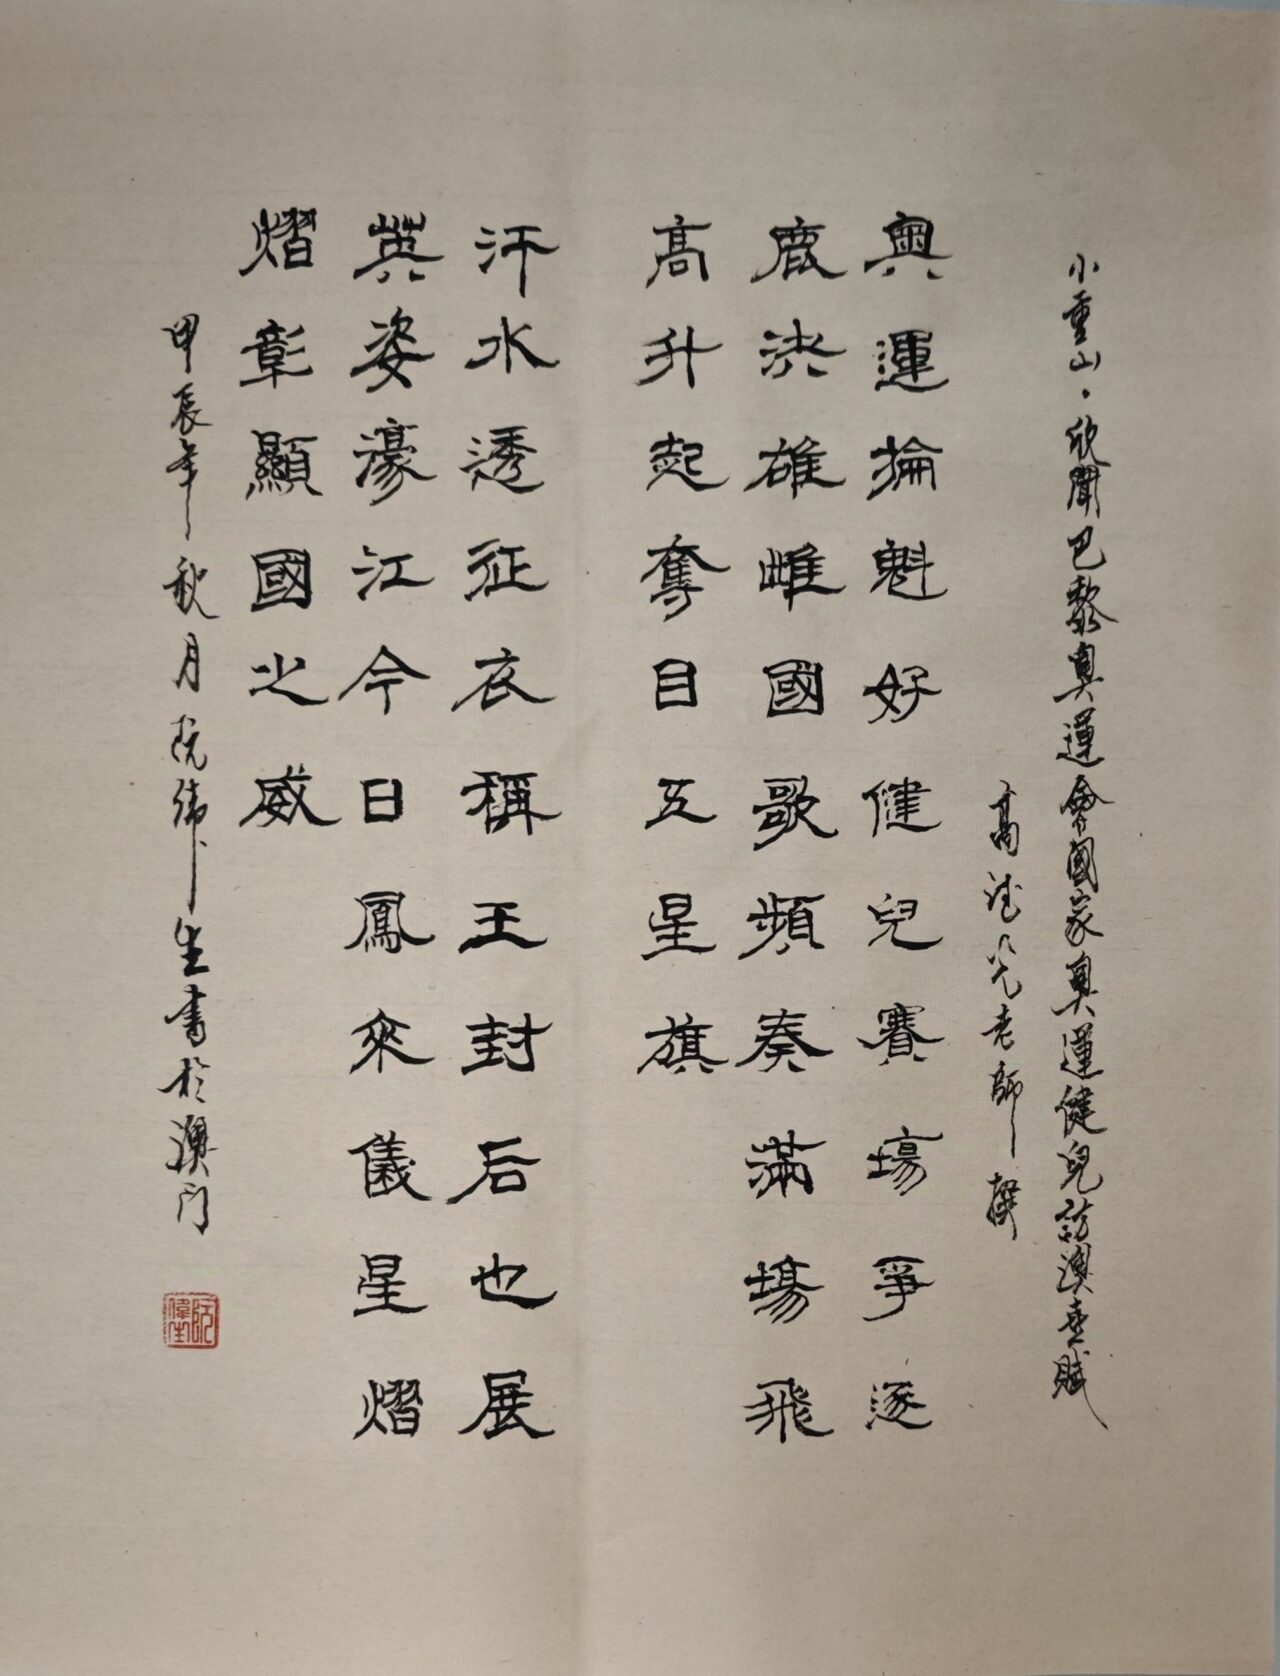 小重山·欣聞巴黎奧運會國家奧運健兒訪澳喜賦
高德光老師撰
奧運掄魁好健兒賽場爭逐
鹿決雄雌國歌頻奏滿場飛
高升起奪目五星旗
汗水透征衣稱王封后也展
英姿濠江今日鳳來儀星熠
熠彰顯國之威
甲辰年秋月阮偉生書於澳门
阮偉生